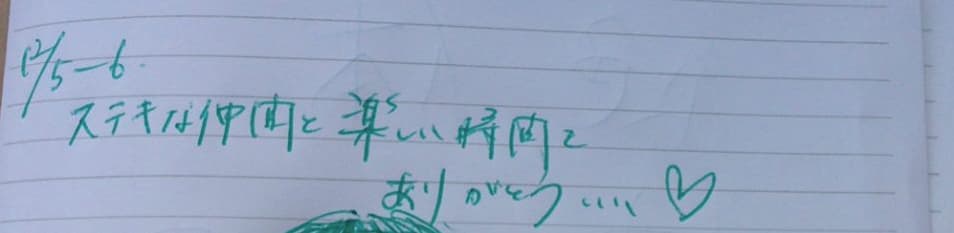 12/5-6.
ステキな仲間と楽しい時間と
ありがとう....♡